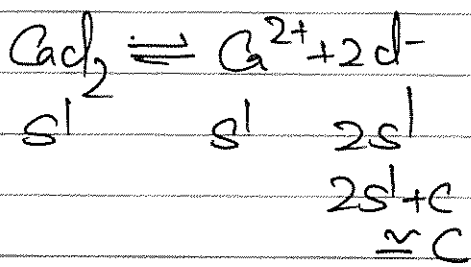 CaCl₂ ⇌ Ca²⁺ + 2Cl⁻
S' S' 2S'
2S' + C
≃ C